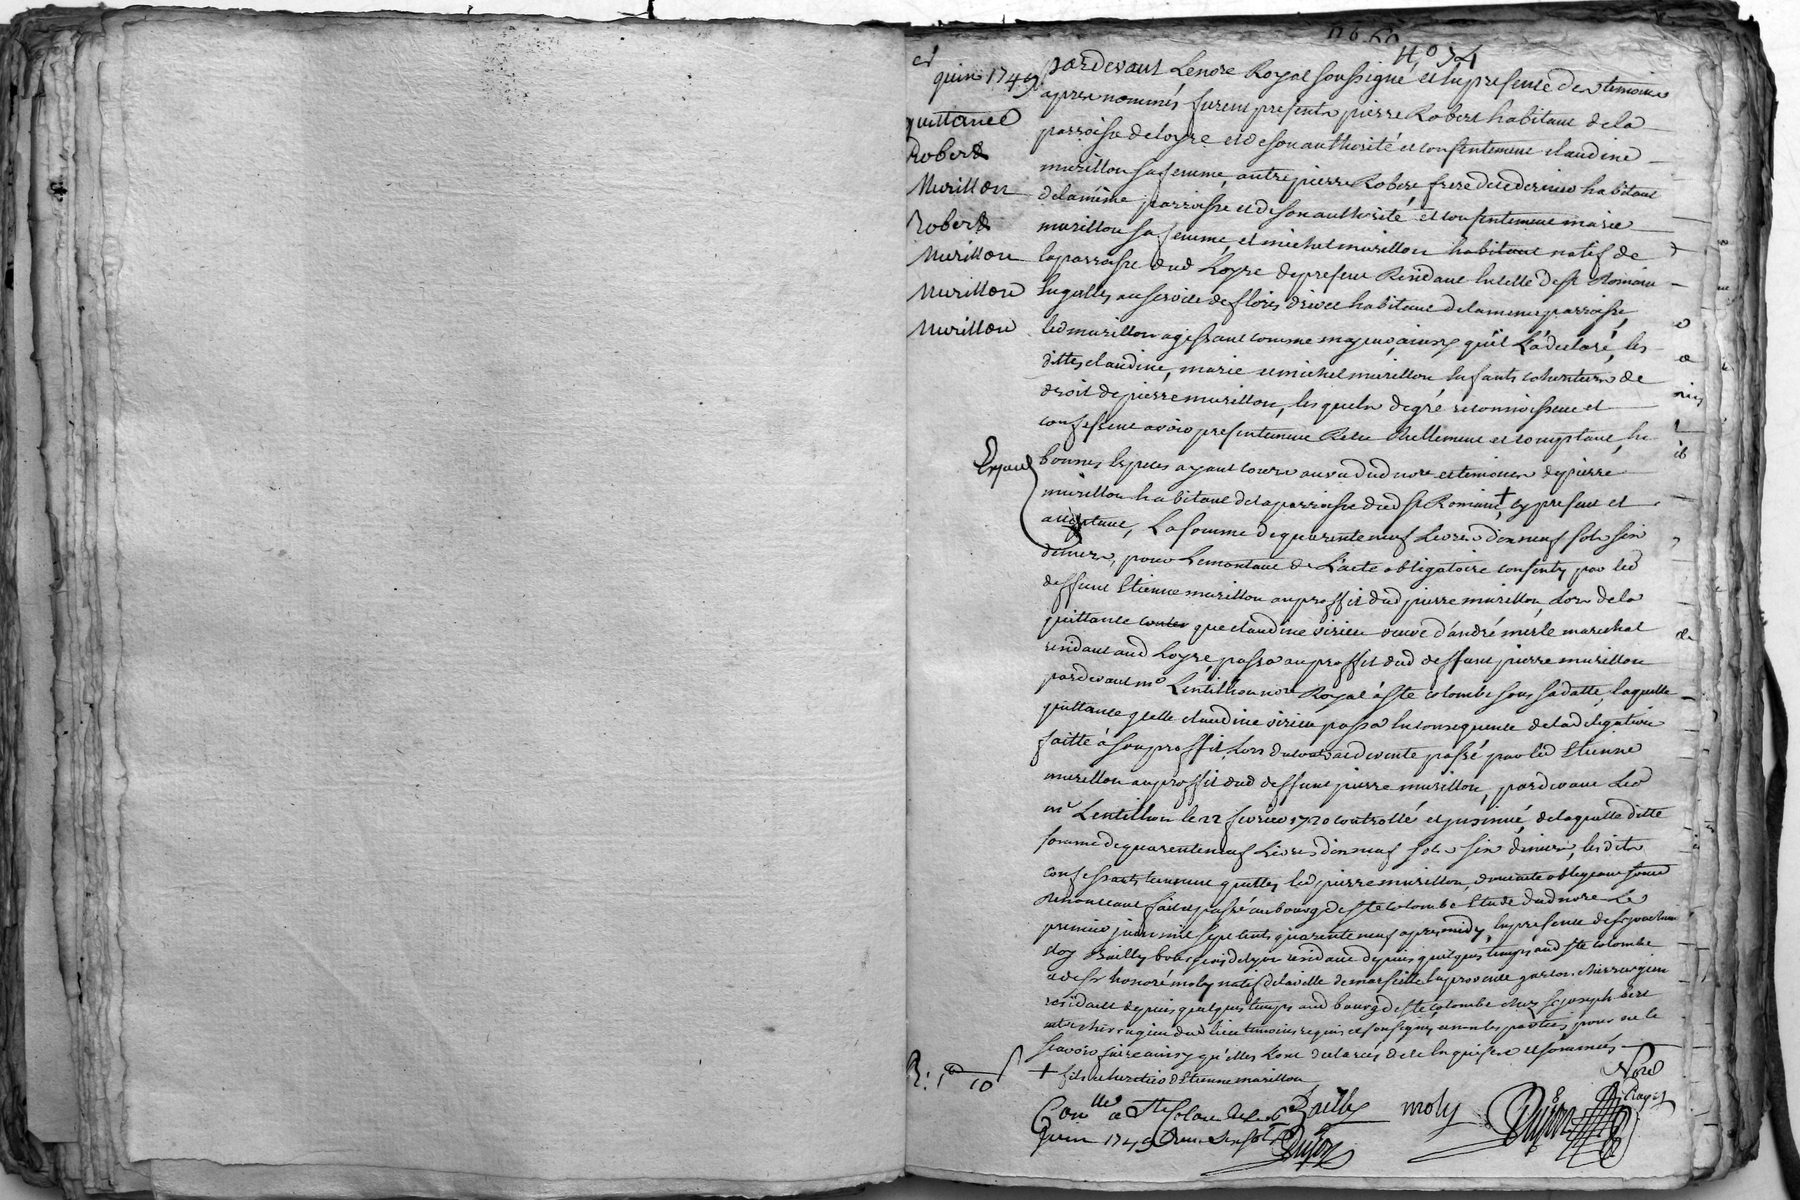 N° 34
er juin 1749
quittance
Robert
Murillon
Robert
Murillon
Murillon
Murillon
pardevant Lenore Royal soussigné et en presence des temoins
apres nommés furent presents pierre Robert habitant de la
parroisse deloyre et de son authorité et consentement claudine
murillon sa femme, autre pierre Robert frere dud dernier habitant
de la même parroisse et de son authorité et consentement marie
murillon sa femme, et michel murillon habitant natif de
la parroisse dud Loyre de present Residant en celle de st Romain
en gallet au service de habitant de la meme parroisse,
led murillon agissant comme majeur, ainsy qu'il L'a declaré, les
dittes claudine, marie et michel murillon enfants coheritiers de
droit de pierre murillon, lesquels de gré reconnoissent et
confessent avoir presentement Receu Reellement et comptant, en
bonnes especes ayant cours au vu dud nore et temoins de pierre
murillon habitant de la parroisse dud st Romain, + cy present et
acceptant, La somme de quarente neuf Livres dix neuf sols six
deniers, pour Lemontant de L'acte obligatoire consenty par led
deffunt Etienne murillon au proffit dud pierre murillon, lors de la
quittance que claudine virieu veuve d'andré merle marechal
residant aud Loyre, passa au proffit dud deffunt pierre murillon
pardevant me Lentillon nore Royal à ste colombe sous sa datte, laquelle
quittance qu'elle claudine virieu passa en consequence de la delegation
faitte à son proffit, Lors du contract de vente passé par led Etienne
murillon au proffit dud deffunt pierre murillon, pardevant led
me Lentillon le 22 fevrier 1720 controllé et insinué, de laquelle ditte
somme de quarente neuf Livres dix neuf sols six deniers, lesdits
confessants tiennent quitte led pierre murillon,
Renonceant fait et passé au bourg de ste colombe Etude dud nore Le
premier juin mil sept cents quarente neuf apres midy, en presence de sr joachim
Bailly bourgeois de lyon residant depuis quelques temps aud ste colombe
et de sr honoré moly natif de la ville de marseille en provence garson chirurgien
residant depuis quelques temps aud bourg de ste colombe chez sr joseph
me chirurgien dud lieu temoins requis et soussignés, non les parties pour ne le
scavoir faire ainsy qu'elles L'ont declaré de ce enquises et sommés
+ fils et heritier d'Etienne murillon
Bailly moly Dujon
Nore Royal
Conllé a Ste Colombe le 6
juin 1749 Receu
Dujon